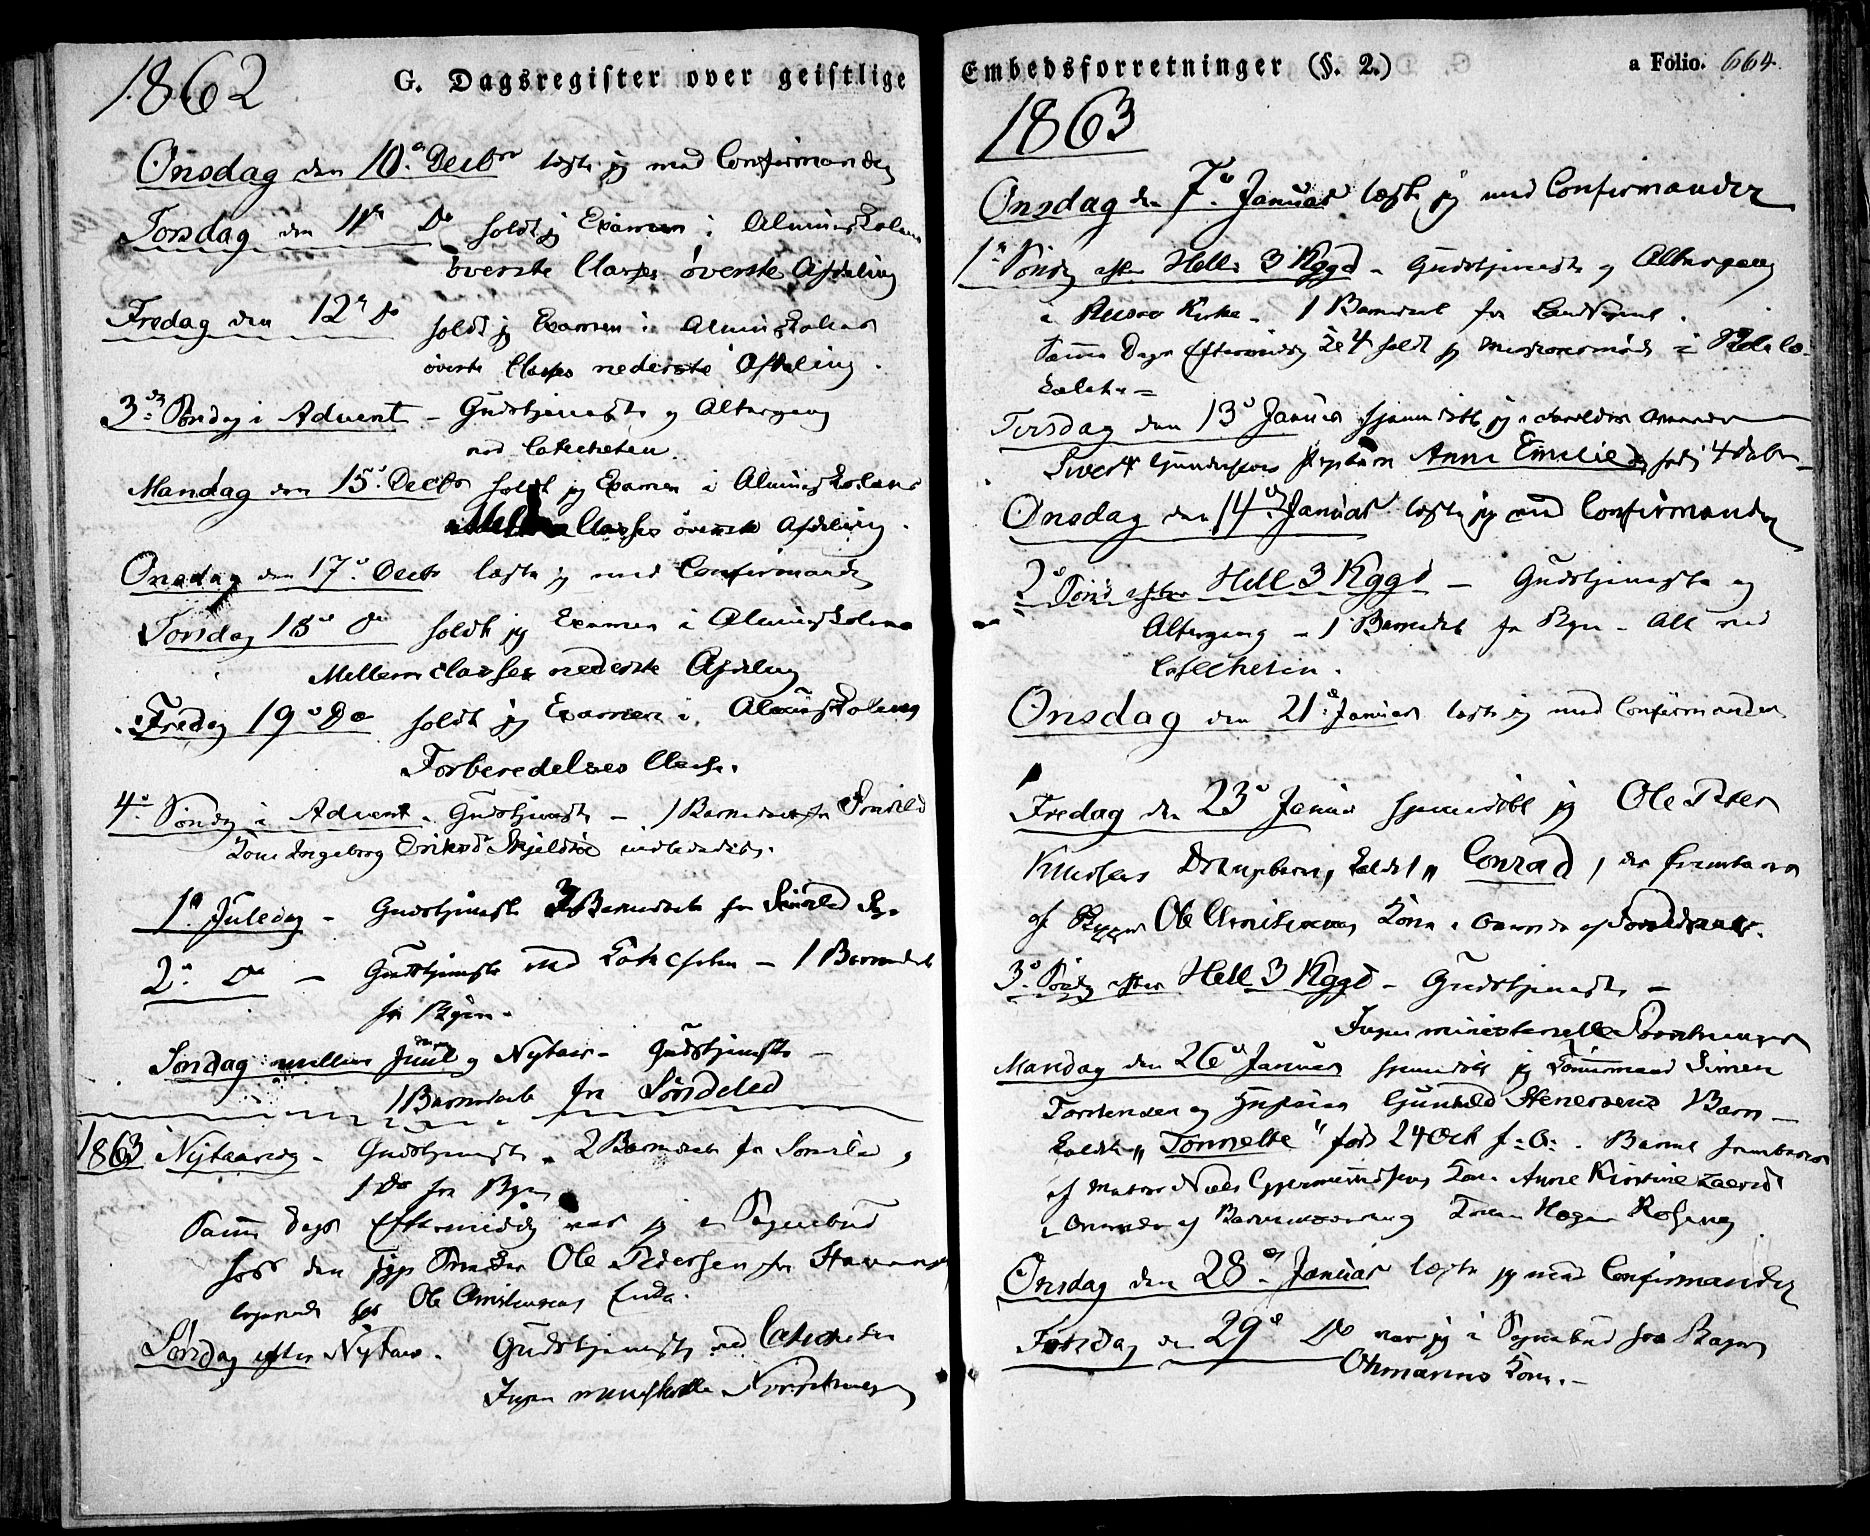 1862
G. Dagsregister over geistlige
Onsdag den 10de Decbr læste jeg med Confirmander
Torsdag den 11te Do holdt jeg Examen i Almueskolens
øverste Classes øverste Afdeling
Fredag den 12te Do holdt jeg Examen i Almueskolens
øverste Classes nederste Afdeling.
3die Søndag i Advent – Gudstjeneste og Altergang
ved Catecheten.
Mandag den 15de Decbr holdt jeg Examen i Almueskolens
Classes øverste Afdeling.
Onsdag den 17de Decbr læste jeg med Confirmander
Torsdag 18de Do holdt jeg Examen i Almueskolens
Mellemclasses nederste Afdeling
Fredag 19de Do holdt jeg Examen i Almueskolens
Forberedelses Classe.
4de Søndag i Advent. Gudstjeneste – 1 Barnedaab fra Søndeled
Kone Ingeborg
1ste Juledag – Gudstjeneste 3 Barnedaab fra Søndeled
2den Do – Gudstjeneste ved Katecheten – 1 Barnedaab
fra Byen.
Søndag mellem Juul og Nytaar – Gudstjeneste –
1 Barnedaab fra Søndeled
1863 Nytaarsdag – Gudstjeneste. 2 Barnedaab fra Søndeled og
1 Do fra Byen
Samme Dags Eftermiddag var jeg i Sognebud
hos den syge Ole Pedersen fra
logerende hos Ole Christensens Enke.
Søndag efter Nytaar. Gudstjeneste ved Catecheten
Ingen ministerielle Forretninger
Embedsforretninger (§. 2.)
a Folio. 664.
1863
Onsdag den 7de Januar læste jeg med Confirmander
1ste Sønd. efter Hell. 3 Kggd – Gudstjeneste og Altergang
i Risøer Kirke – 1 Barnedaab fra Landsognet.
Samme Dags Eftermiddag Kl 4 holdt jeg Missionsmøde i
Tirsdag den 13de Januar hjemmedøbte jeg i Forældres
Anne Emilie
Onsdag den 14de Januar læste jeg med Confirmander
2den Sønd efter Hell 3 Kggd – Gudstjeneste og
Altergang – 1 Barnedaab fra Byen – Alt ved
Catecheten.
Onsdag den 21de Januar læste jeg med Confirmander
Fredag den 23de Januar hjemmedøbte jeg Ole Peter
Knudsens Drengebarn, kaldet „Conrad, der frembares
af Ole Christensens Kone i Overvær af Forældrene.
3die Sønd. efter Hell 3 Kggd – Gudstjeneste –
Ingen ministerielle Forretninger
Mandag den 26de Januar hjemmedøbte jeg Tømmermand Simen
Torstensen og Hustru Gunhild Stenersens Barn –
kaldet „Tonnette“ født 24 Oct f: A: – Barnet frembares
af Matros Niels Kone Anne Kirstine
i Overvær af
Onsdag den 28de Januar læste jeg med Confirmander
Torsdag den 29de Do var jeg i Sognebud hos Bager
Ohmanns Kone. –